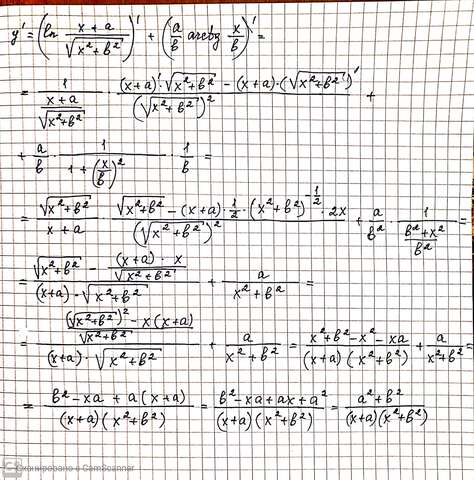 y' = (ln (x+a)/√(x²+b²))' + (a/b arctg x/b)' =
= 1/((x+a)/√(x²+b²)) · ((x+a)'·√(x²+b²) − (x+a)·(√(x²+b²))')/(√(x²+b²))² +
+ a/b · 1/(1+(x/b)²) · 1/b =
= √(x²+b²)/(x+a) · (√(x²+b²) − (x+a)·1/2·(x²+b²)^(−1/2)·2x)/(√(x²+b²))² + a/b² · 1/((b²+x²)/b²) =
= (√(x²+b²) − ((x+a)·x)/√(x²+b²))/((x+a)·√(x²+b²)) + a/(x²+b²) =
= (((√(x²+b²))² − x(x+a))/√(x²+b²))/((x+a)·√(x²+b²)) + a/(x²+b²) = (x²+b²−x²−xa)/((x+a)(x²+b²)) + a/(x²+b²) =
= (b²−xa+a(x+a))/((x+a)(x²+b²)) = (b²−xa+ax+a²)/((x+a)(x²+b²)) = (a²+b²)/((x+a)(x²+b²))
CS Сканировано с CamScanner